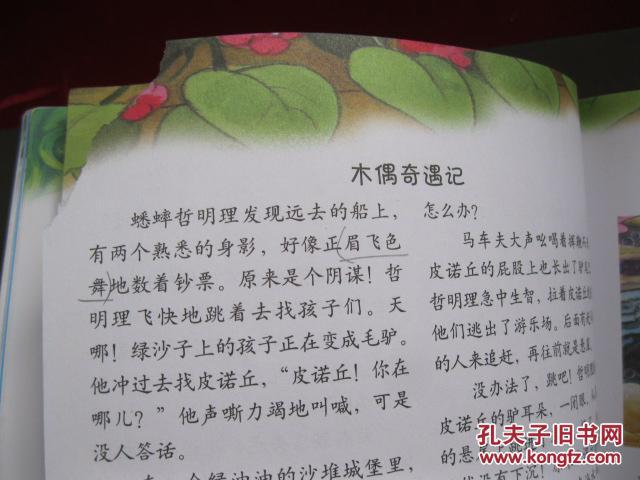 木偶奇遇记
蟋蟀哲明理发现远去的船上，
有两个熟悉的身影，好像正眉飞色
舞地数着钞票。原来是个阴谋！哲
明理飞快地跳着去找孩子们。天
哪！绿沙子上的孩子正在变成毛驴。
他冲过去找皮诺丘，“皮诺丘！你在
哪儿？”他声嘶力竭地叫喊，可是
没人答话。
个绿油油的沙堆城堡里，
怎么办？
马车夫大声吆喝着挥鞭
皮诺丘的屁股上也长出了驴
哲明理急中生智，拉着皮诺丘
他们逃出了游乐场。后面有
的人来追赶，再往前就是悬
没办法了，跳吧！哲明
皮诺丘的驴耳朵，一闭眼，
的悬崖上跳
没有下沉！
孔夫子旧书网
www.kongfz.com